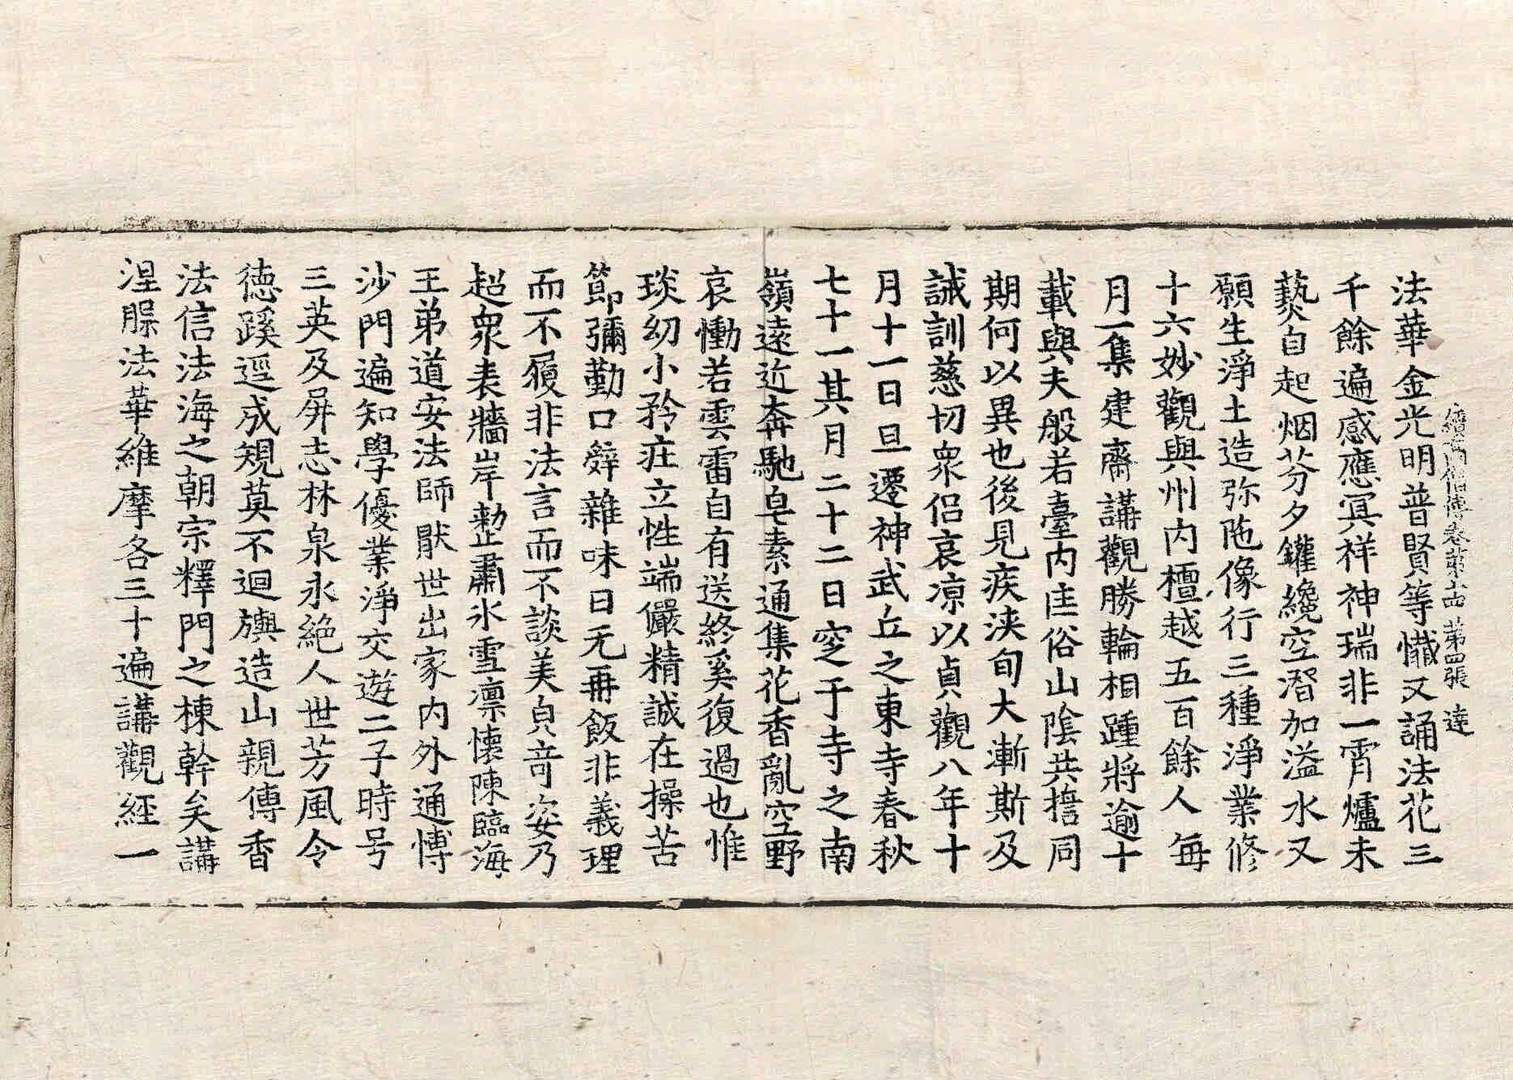 法華金光明普賢等懺又誦法花三
千餘遍感應冥祥神瑞非一霄爐未
爇自起烟芬夕鑵纔空潛加溢水又
願生淨土造弥陁像行三種淨業修
十六妙觀與州内檀越五百餘人每
月一集建齋講觀勝輪相踵將逾十
載與夫般若臺内匡俗山陰共擔同
期何以異也後見疾浹旬大漸斯及
誡訓慈切衆侣哀凉以貞觀八年十
月十一日旦遷神武丘之東寺春秋
七十一其月二十二日窆于寺之南
嶺遠近奔馳皂素通集花香亂空野
哀慟若雲雷自有送終奚復過也惟
琰幼小矜庄立性端儼精誠在操苦
節彌勤口辤雜味日无再飯非義理
而不履非法言而不談美㒵竒姿乃
超衆表牆岸整肅氷雪凛懷陳臨海
王弟道安法師厭世出家内外通愽
沙門遍知學優業淨交遊二子時号
三英及屏志林泉永絶人世芳風令
德蹊逕成規莫不迴輿造山親傳香
法信法海之朝宗釋門之棟幹矣講
涅槃法華維摩各三十遍講觀經一
續高僧傳卷第十四 第四張 達